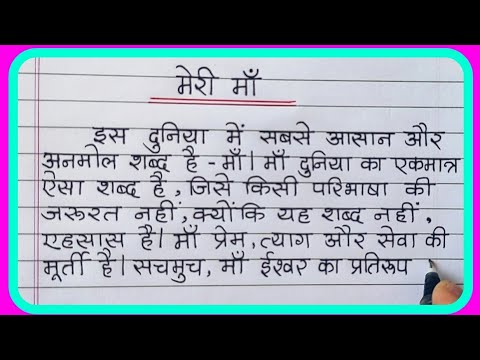 मेरी माँ
इस दुनिया में सबसे आसान और
अनमोल शब्द है - माँ। माँ दुनिया का एकमात्र
ऐसा शब्द है, जिसे किसी परिभाषा की
जरूरत नहीं, क्योंकि यह शब्द नहीं,
एहसास है। माँ प्रेम, त्याग और सेवा की
मूर्ती है। सचमुच, माँ ईश्वर का प्रतिरूप